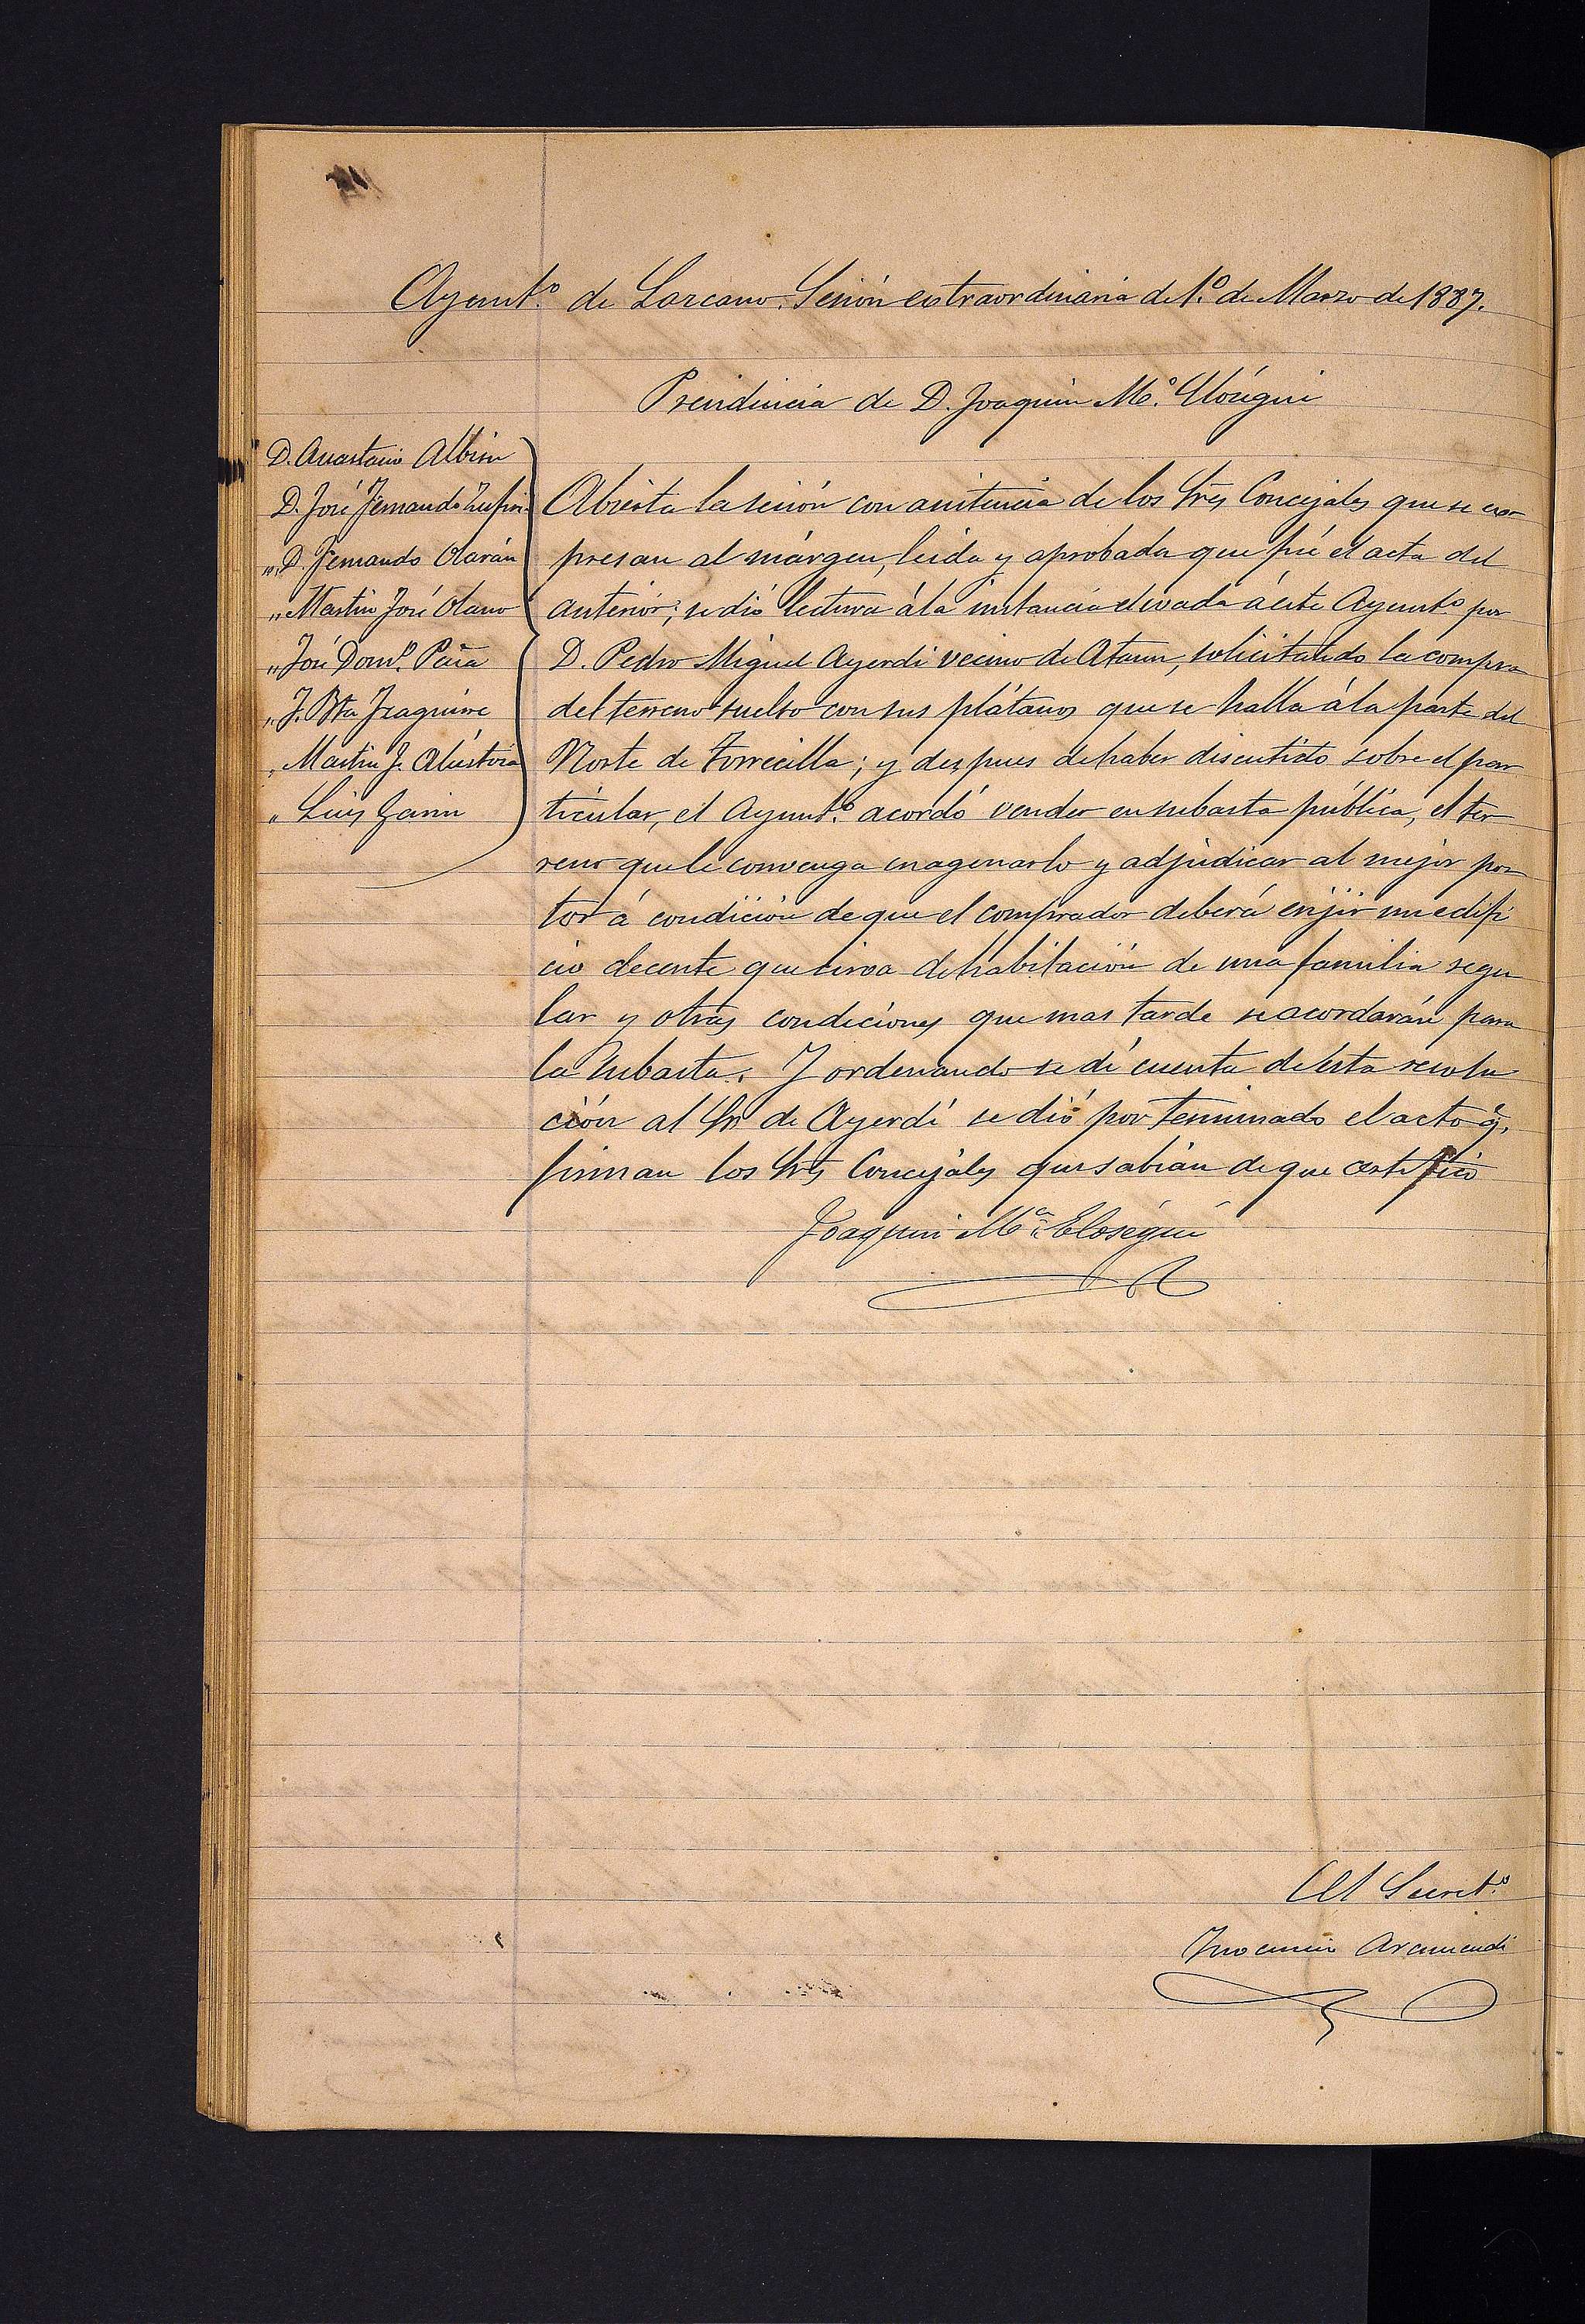 Ayunt.º de Lazcano. Sesión extraordinaria de 1.º de Marzo de 1887.
Presidencia de D. Joaquin M.ª Elósegui
D. Anastacio Albisu
D. José Fernando
„ D. Fernando Olarán
„ Martin José Olano
„ José Dom.º Peña
„ J. Bta Izaguirre
„ Martin J. Alustiza
„ Luis Garin
Abierta la sesión con asistencia de los Sres Concejales que se ex-
presan al márgen, leida y aprobada que fué el acta del
anterior; se dió lectura á la instancia elevada á este Ayunt.º por
D. Pedro Miguel Ayerdi vecino de Ataun, solicitando la compra
del terreno suelto con sus plátanos que se halla á la parte del
Norte de Torrecilla; y despues de haber discutido sobre el par
ticular, el Ayunt.º acordó vender en subasta pública, el ter-
reno que le convenga enagenarlo y adjudicar al mejor pos
tor á condición de que el comprador deberá erijir un edifi
cio decente que sirva de habitación de una familia regu
lar y otras condiciones que mas tarde se acordarán para
la subasta. Y ordenando se dé cuenta de esta resolu
ción al Sr. de Ayerdi se dió por terminado el acto q.
firman los Sres Concejales que sabián de que certifico
Joaquin M.ª Elósegui
El Secret.º
Inocencio Aramendi